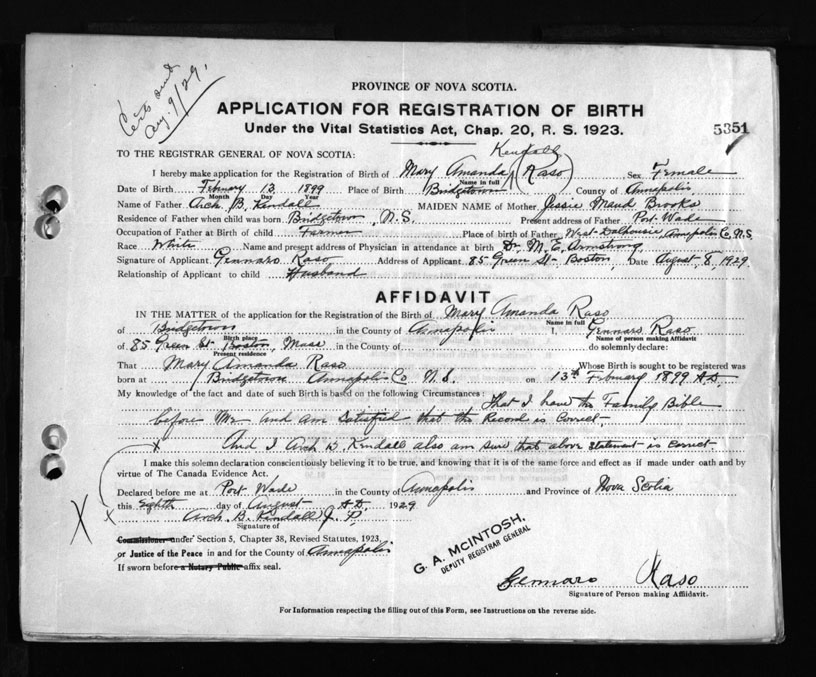 Certs sent
Aug. 9/29.
PROVINCE OF NOVA SCOTIA.
APPLICATION FOR REGISTRATION OF BIRTH
Under the Vital Statistics Act, Chap. 20, R. S. 1923.
5351
TO THE REGISTRAR GENERAL OF NOVA SCOTIA:
Kendall
I hereby make application for the Registration of Birth of Mary Amanda (Raso) Sex Female
Name in full
Date of Birth Febuary 13 1899 Place of Birth Bridgetown County of Annapolis
Month Day Year
Name of Father Arch B. Kendall MAIDEN NAME of Mother Jessie Maud Brooks
Residence of Father when child was born Bridgetown, N.S. Present address of Father Port Wade
Occupation of Father at Birth of child Farmer Place of birth of Father West Dalhousie, Annapolis Co, N.S.
Race White Name and present address of Physician in attendance at birth Dr. M. E. Armstrong
Signature of Applicant Gennaro Raso Address of Applicant 85 Green St- Boston, Date August, 8, 1929.
Relationship of Applicant to child Husband
AFFIDAVIT
IN THE MATTER of the application for the Registration of the Birth of Mary Amanda Raso
Name in full
of Bridgetown in the County of Annapolis I, Gennaro Raso
Birth place Name of person making Affidavit
of 85 Green St Boston, Mass in the County of do solemnly declare:
Present residence
That Mary Amanda Raso Whose Birth is sought to be registered was
born at Bridgetown Annapolis Co N.S. on 13th Febuary 1899 A.D.
My knowledge of the fact and date of such Birth is based on the following Circumstances: That I have the Family Bible
before Me and am Satisfied that the Record is Correct-
x And I Arch B. Kendall also am sure that above statement is correct
I make this solemn declaration conscientiously believing it to be true, and knowing that it is of the same force and effect as if made under oath and by
virtue of The Canada Evidence Act.
Declared before me at Port Wade in the County of Annapolis and Province of Nova Scotia
this Eighth day of August A.D. 1929
X x Arch B. Kendall J. P.
Signature of
Commissioner under Section 5, Chapter 38, Revised Statutes, 1923,
or Justice of the Peace in and for the County of Annapolis
If sworn before a Notary Public affix seal.
G. A. McINTOSH,
DEPUTY REGISTRAR GENERAL
Gennaro Raso
Signature of Person making Affidavit.
For Information respecting the filling out of this Form, see Instructions on the reverse side.